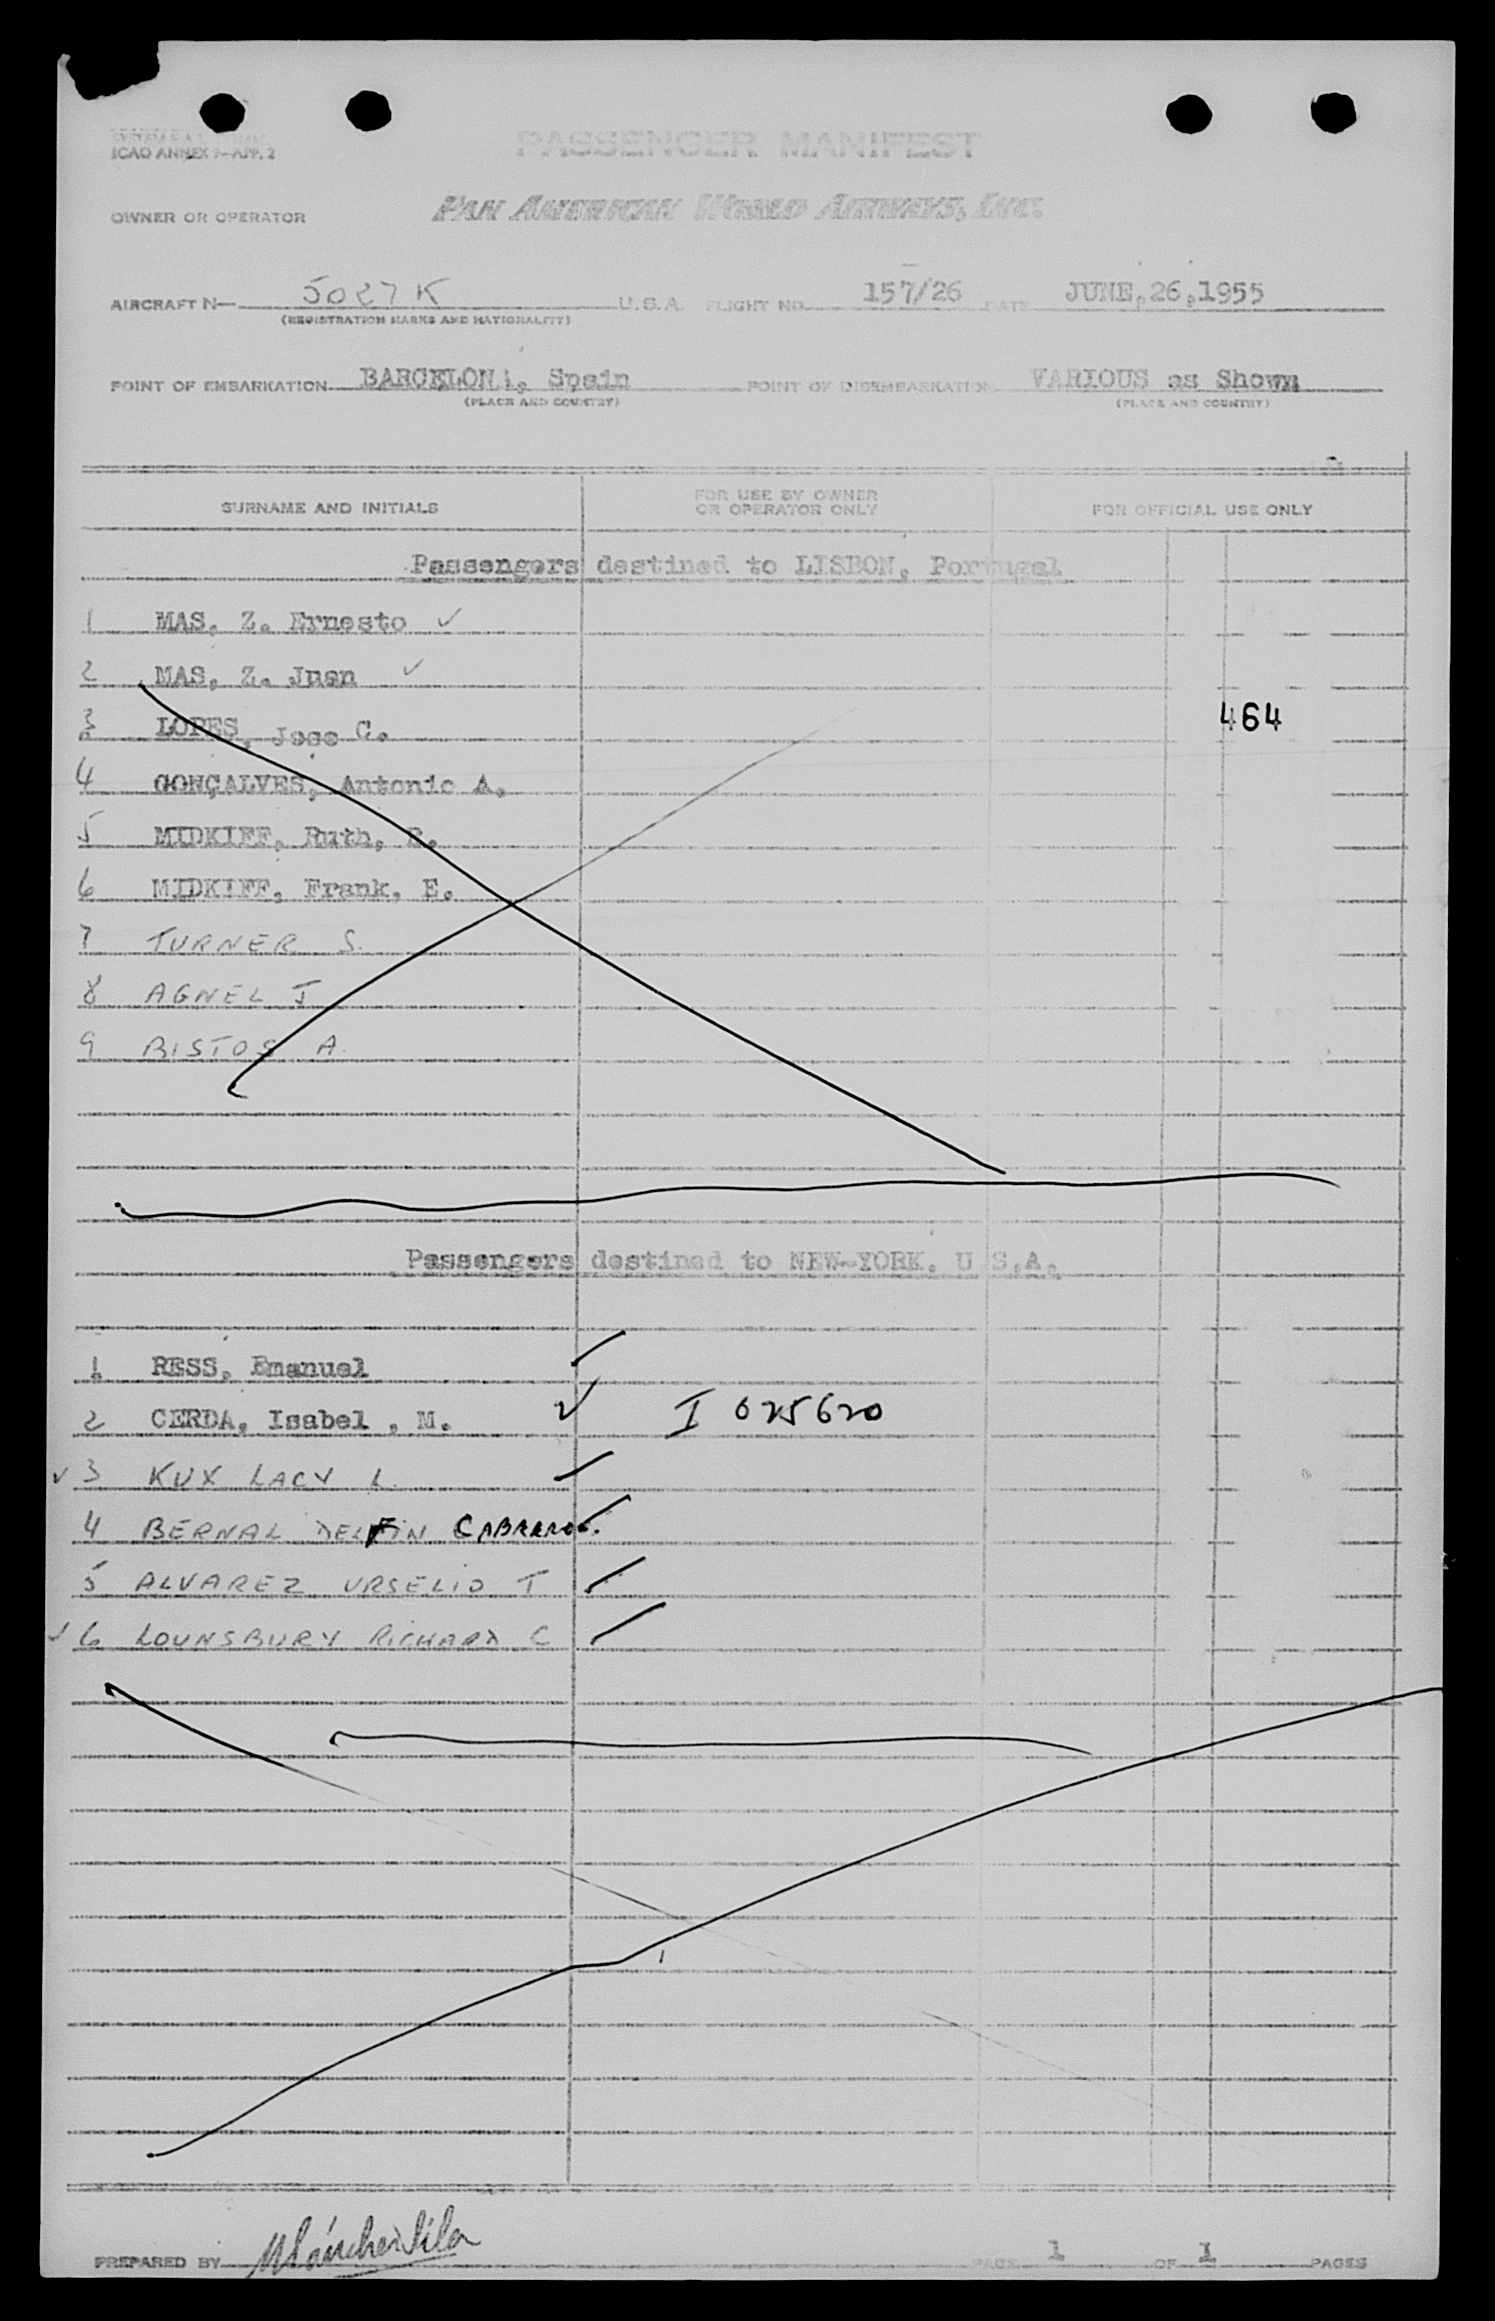 ICAO ANNEX 9—APP. 2
PASSENGER MANIFEST
OWNER OR OPERATOR PAN AMERICAN WORLD AIRWAYS, INC.
AIRCRAFT N— 5027K U.S.A. FLIGHT NO. 157/26 DATE JUNE,26,1955
(REGISTRATION MARKS AND NATIONALITY)
POINT OF EMBARKATION BARCELONA, Spain POINT OF DISEMBARKATION VARIOUS as Shown
(PLACE AND COUNTRY) (PLACE AND COUNTRY)
SURNAME AND INITIALS FOR USE BY OWNER OR OPERATOR ONLY FOR OFFICIAL USE ONLY
Passengers destined to LISBON, Portugal
1 MAS, Z. Ernesto ✓
2 MAS, Z. Juan ✓
3 LOPES, Jose C. 464
4 GONÇALVES, Antonio A.
5 MIDKIFF, Ruth, R.
6 MIDKIFF, Frank, E.
7 TURNER S.
8 AGNEL J
9 BISTOS A.
Passengers destined to NEW-YORK. U.S.A.
1 RESS, Emanuel
2 CERDA, Isabel , M. ✓ I 025620
✓ 3 KUX LACY L.
4 BERNAL DELFIN
5 ALVAREZ URSELIO T
✓ 6 LOUNSBURY RICHARD C
PREPARED BY PAGE 1 OF 1 PAGES